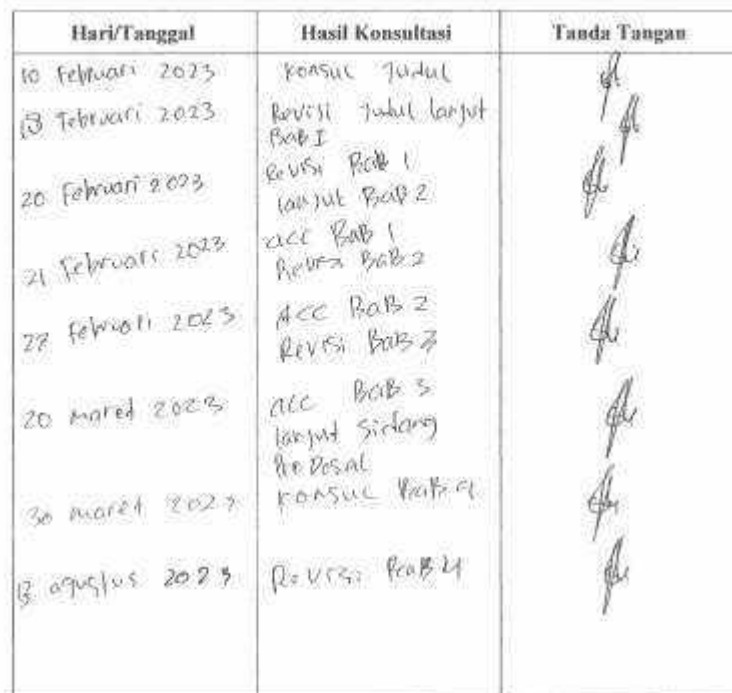 Hari/Tanggal Hasil Konsultasi Tanda Tangan
10 Februari 2023 Konsul Judul
13 Februari 2023 Revisi Judul lanjut
BaB I
20 Februari 2023 Revisi BaB 1
lanjut BaB 2
21 Februari 2023 acc BaB 1
Revisi BaB 2
27 Februari 2023 Acc BaB 2
Revisi BaB 3
20 maret 2023 acc BaB 3
lanjut Sidang
Proposal
30 maret 2023 Konsul BaB 4
13 agustus 2023 Revisi BaB 4